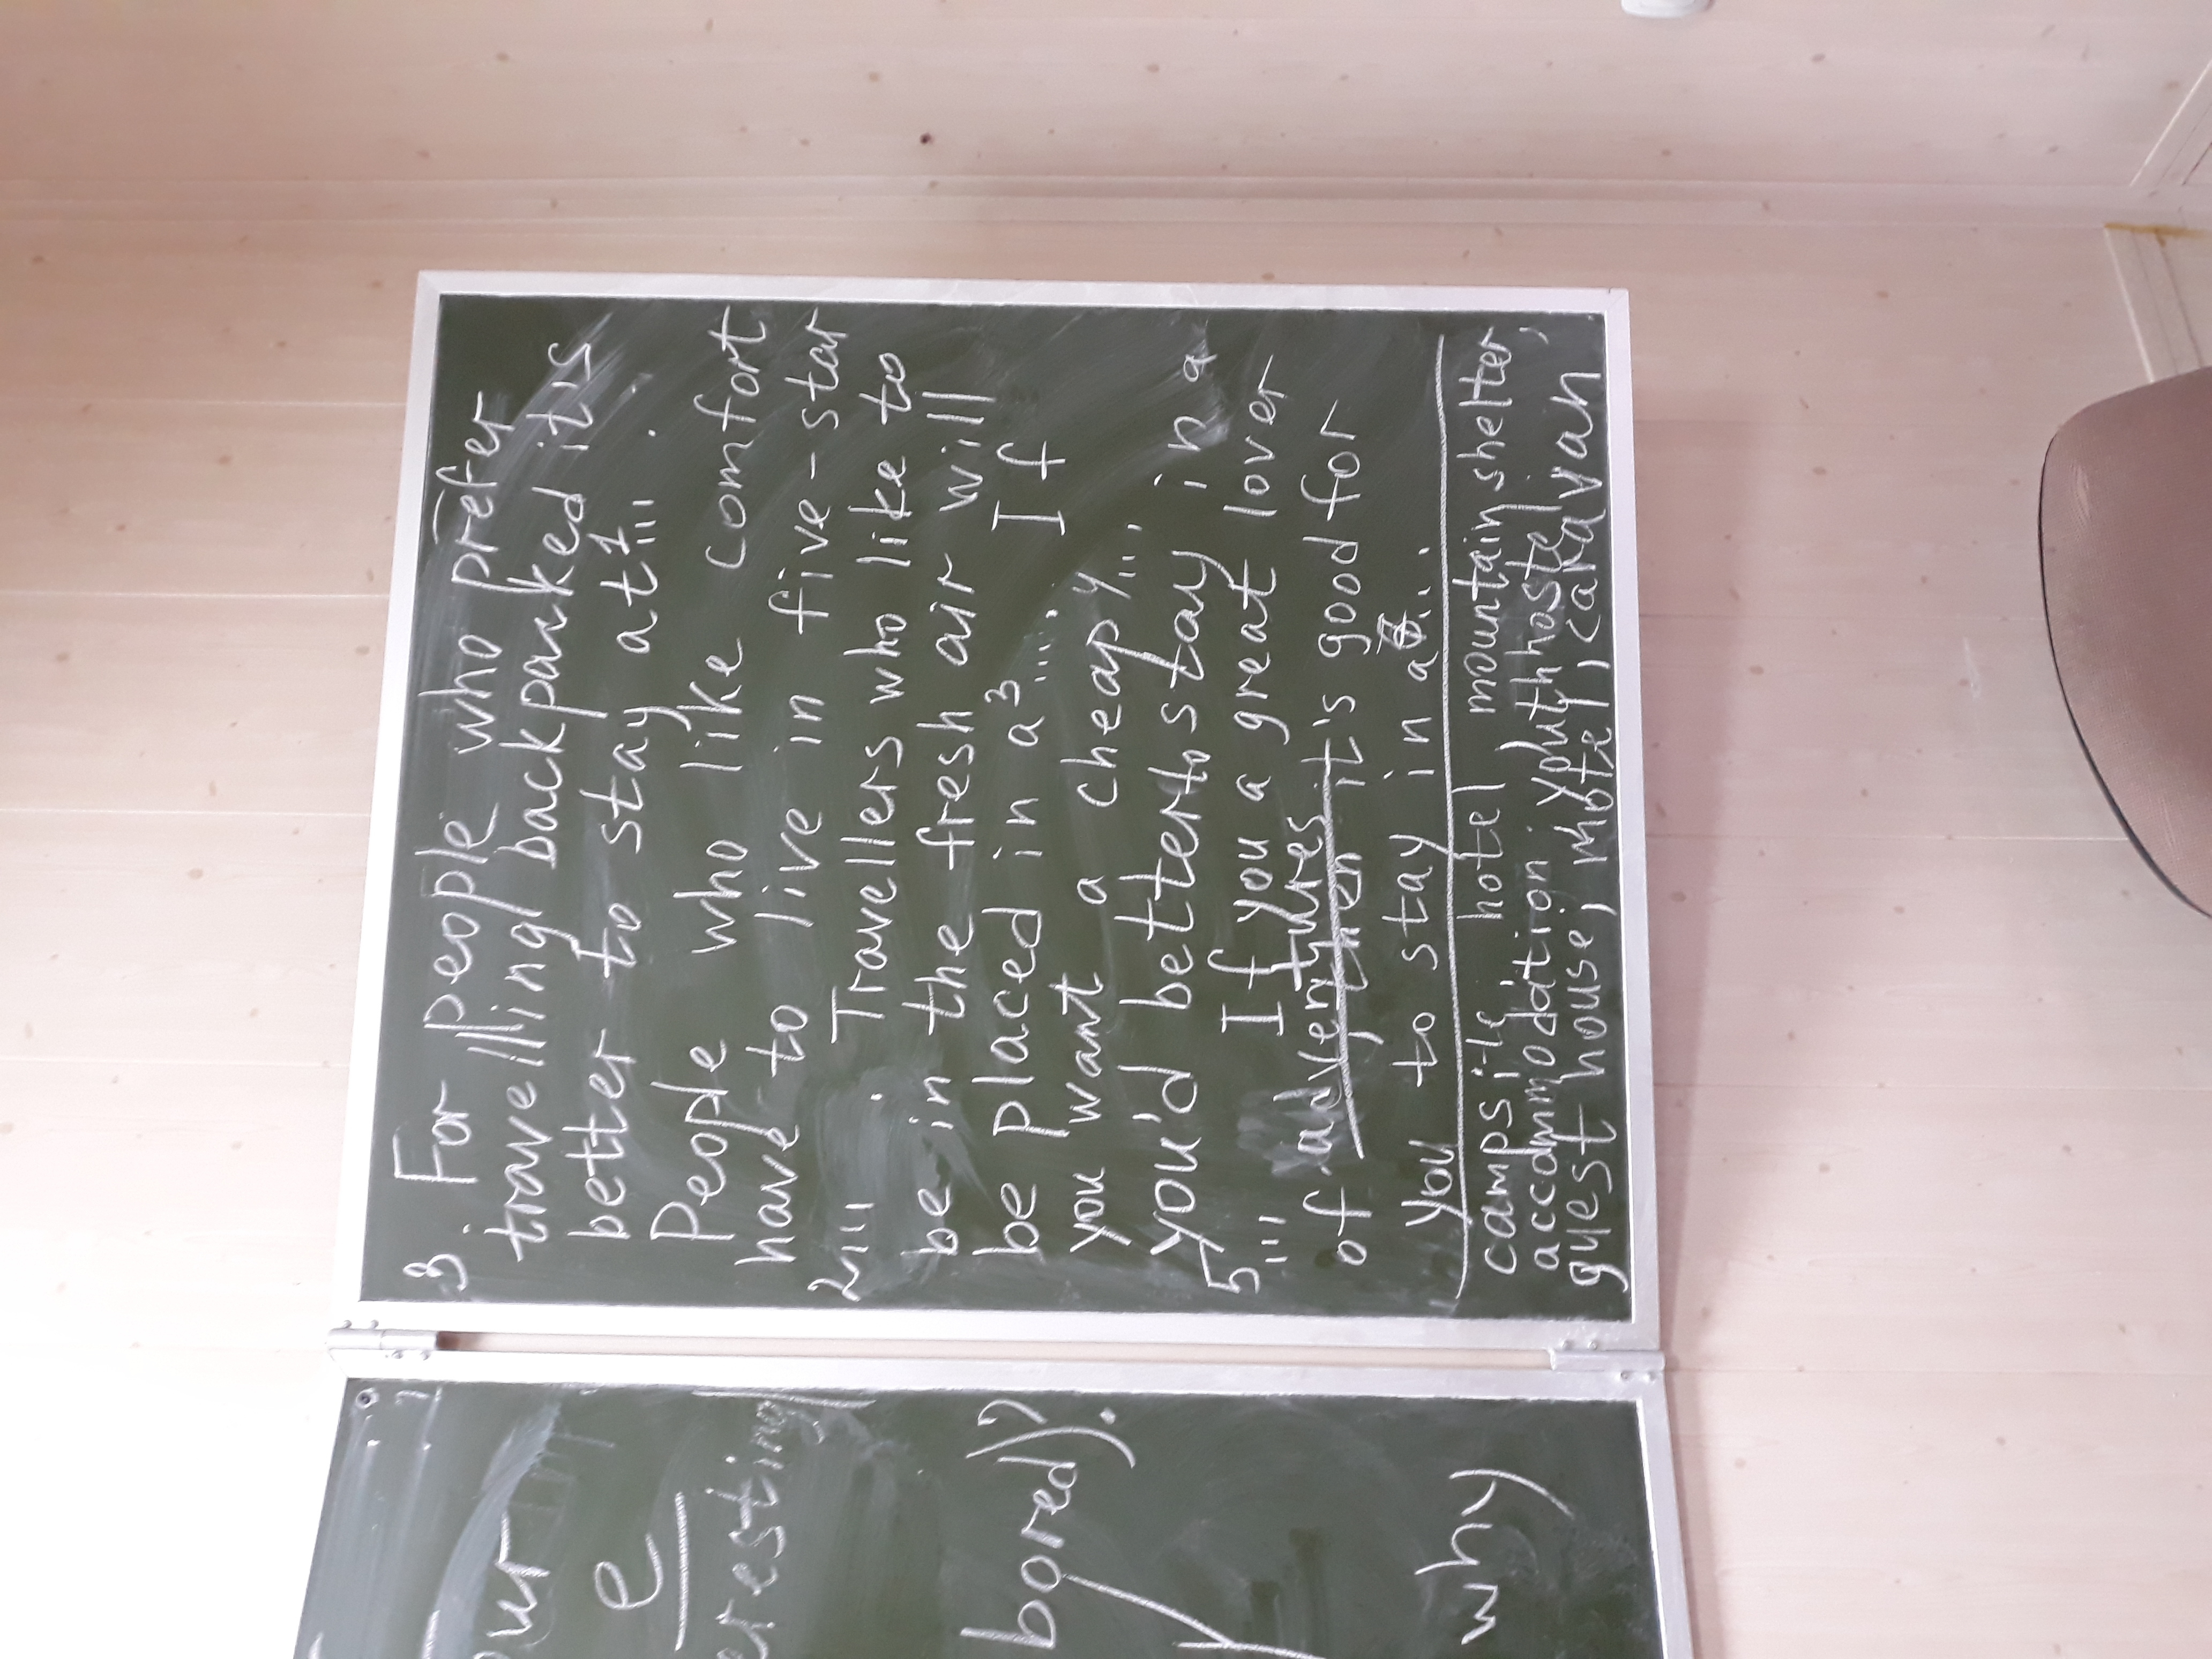 3. For people who prefer
travelling backpanked it is
better to stay at 1... .
People who like comfort
have to live in five-star
2... . Travellers who like to
be in the fresh air will
be placed in a 3.... If
you want a cheap 4...,
you'd better to stay in a
5... If you a great lover
of adventures it's good for
you to stay in a 6...
campsite hotel mountain shelter,
accommodation, youth hostel,
guest house, motel, caravan
our
e
eresting
bored)?
why